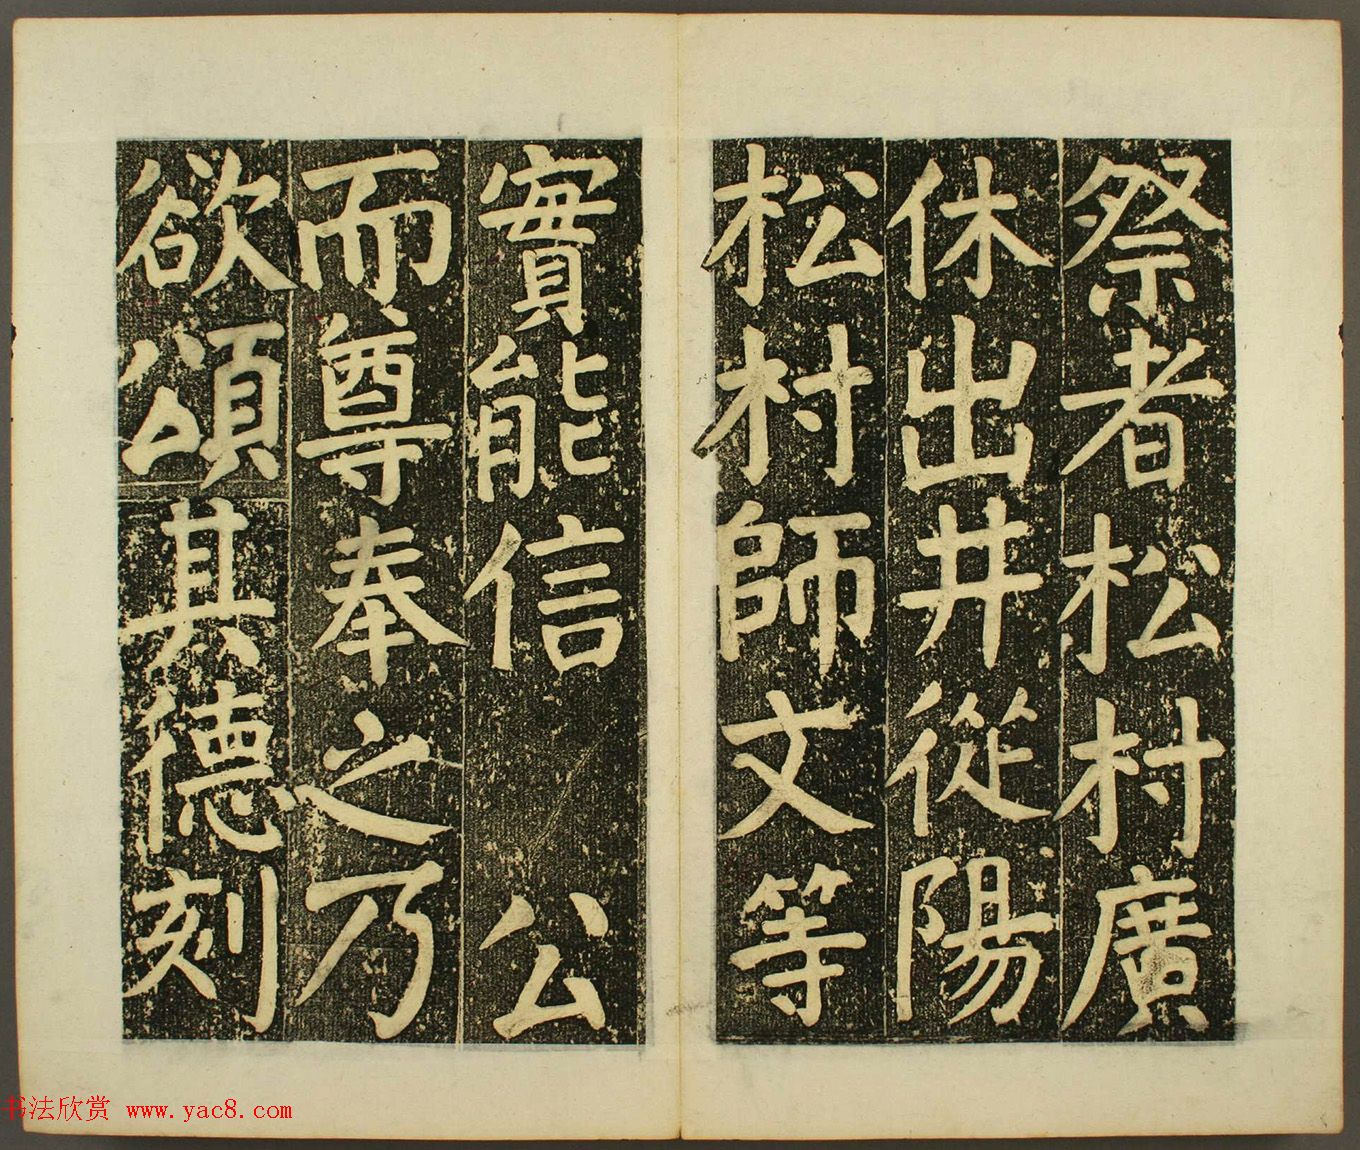 祭者松村廣
休出井從陽
松村師文等
實能信 公
而尊奉之乃
欲頌其德刻
书法欣赏 www.yac8.com